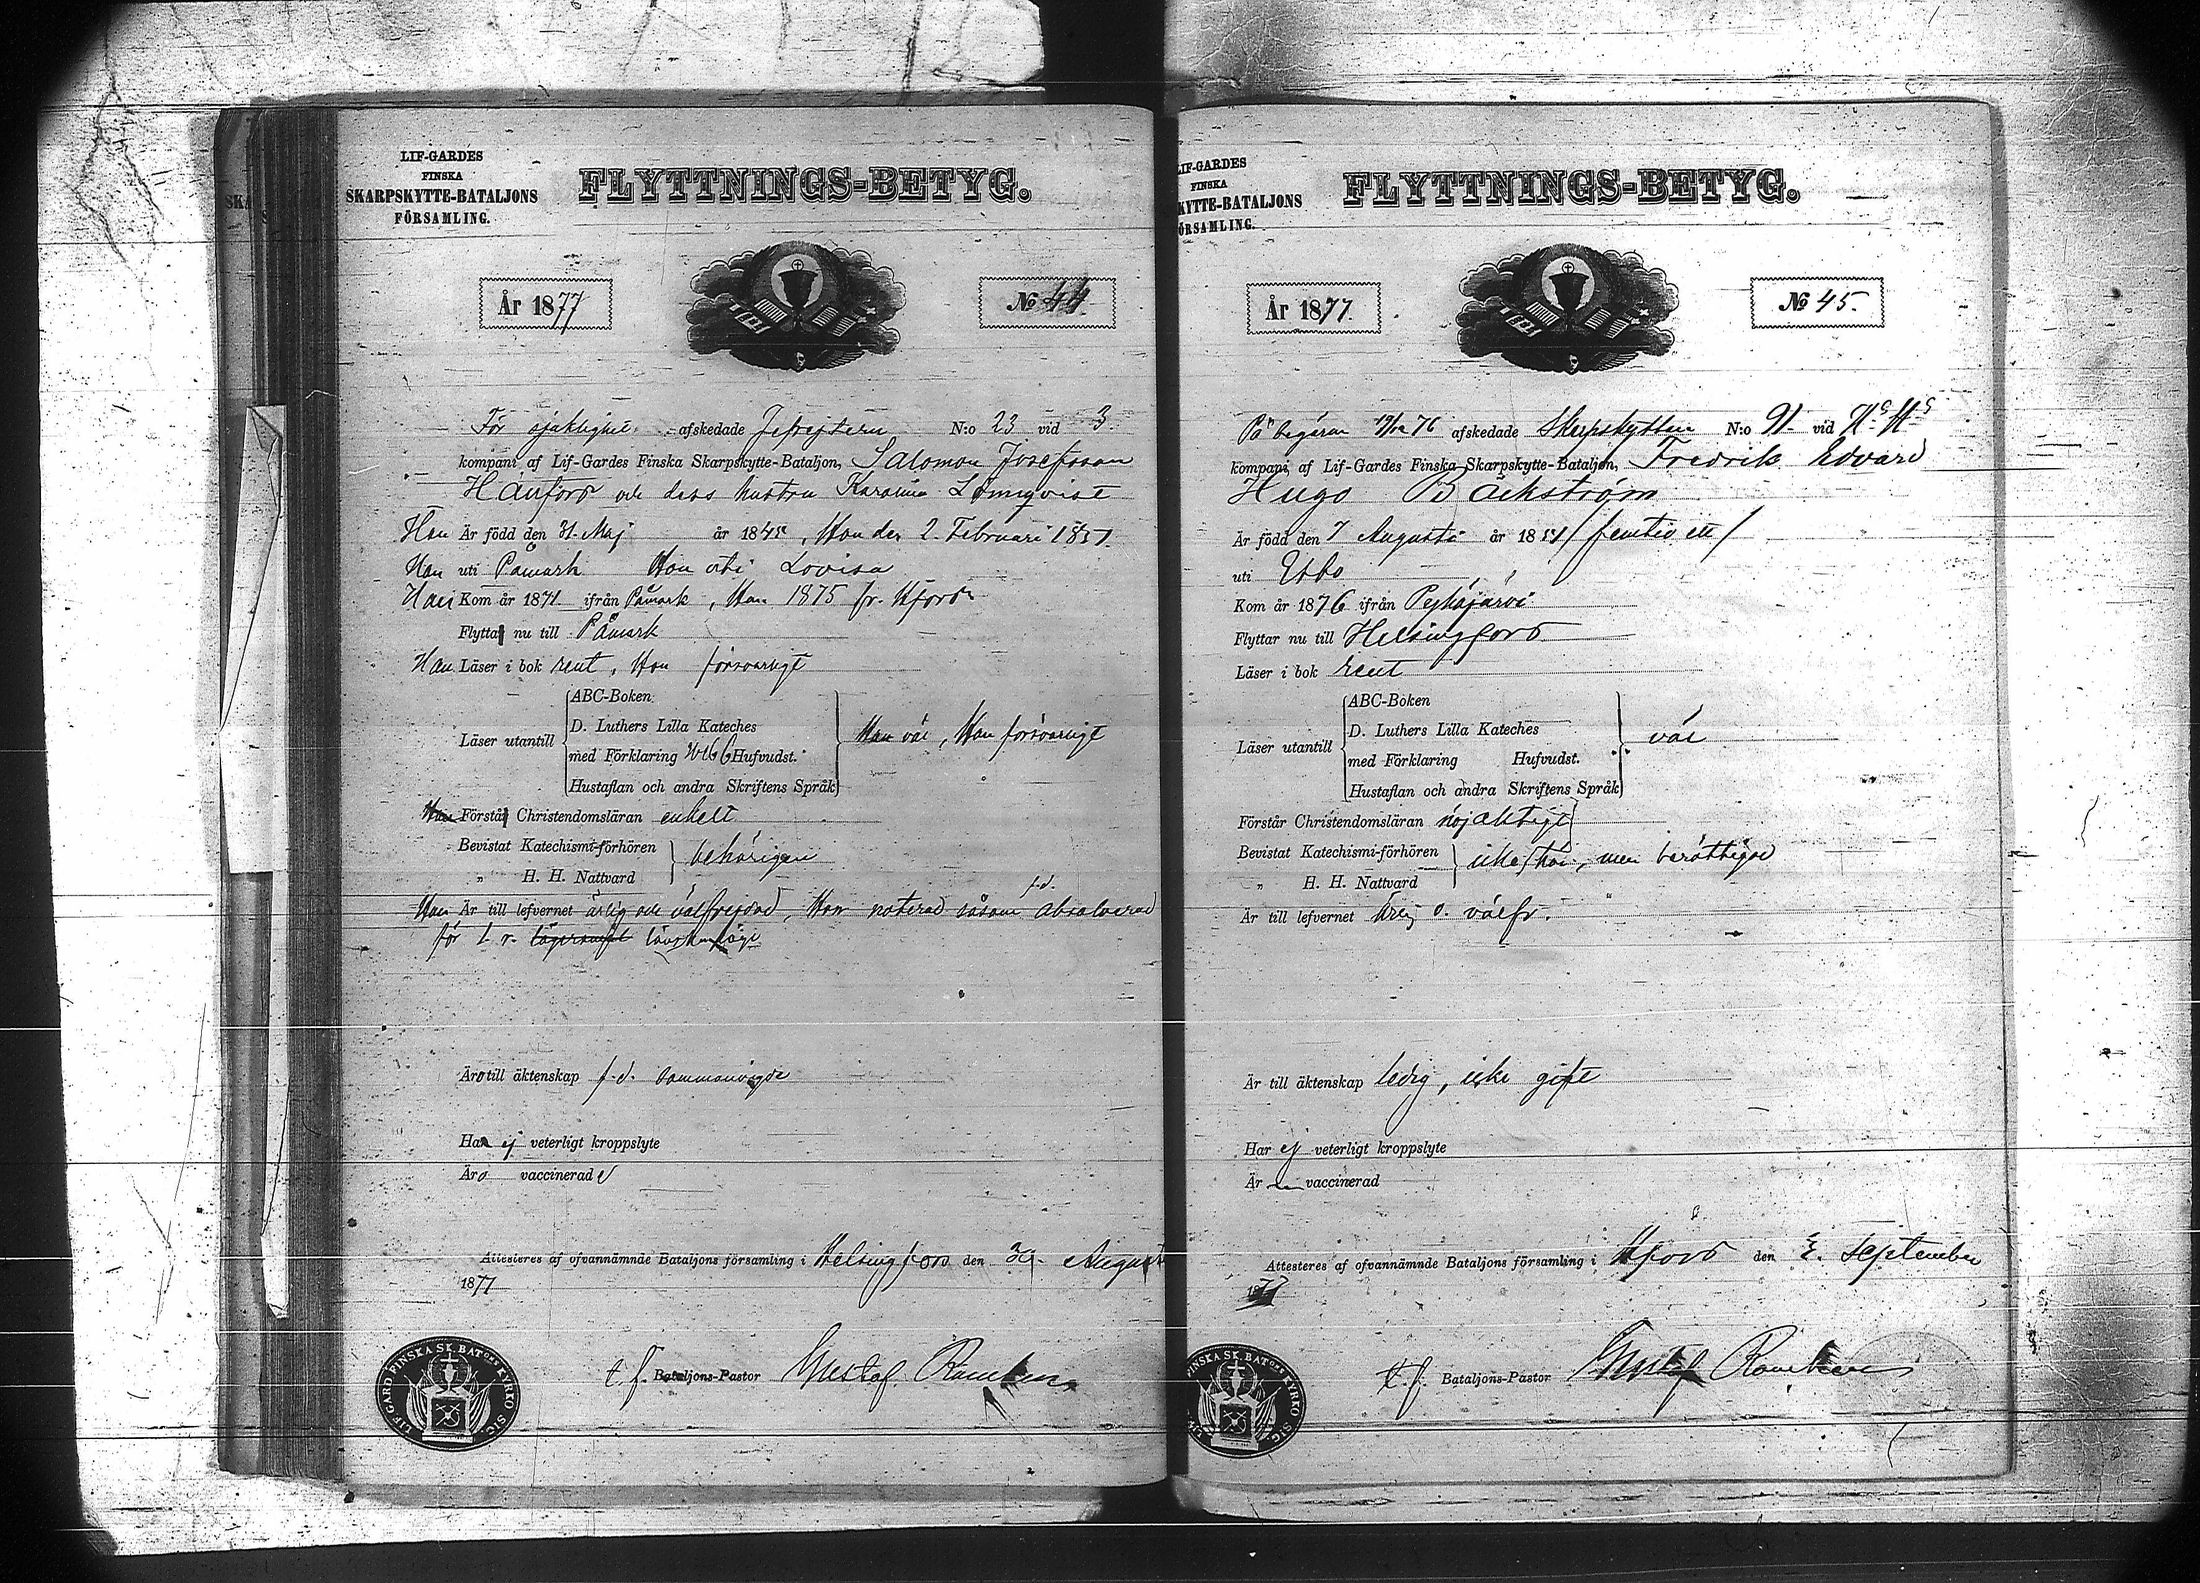 LIF-GARDES
FINSKA
SKARPSKYTTE-BATALJONS
FÖRSAMLING.
FLYTTNINGS-BETYG.
År 1877
No 44
För sjuklighet afskedade Jefrejtern N:o 23 vid 3
kompani af Lif-Gardes Finska Skarpskytte-Bataljon, Salomon Josefsson
Hanfors och dess hustru Karolina Lönnqvist
Han Är född den 31. Maj år 1845, Hon den 2. Februari 1851.
Han uti Påmark Hon uti Lovisa
Han Kom år 1871 ifrån Påmark, Hon 1875 fr. Hfors
Flytta nu till Påmark
Han Läser i bok rent, Hon försvarligt
Läser utantill
ABC-Boken
D. Luthers Lilla Kateches
med Förklaring Hufvudst.
Hustaflan och andra Skriftens Språk
Han väl, Hon försvarligt
Förstå Christendomsläran enkelt
Bevistat Katechismi-förhören
„ H. H. Nattvard
behörigen
Han Är till lefvernet ärlig och välfrejdad, Hon noterad såsom f.d. absolverad
för 1 r. lönskaläge
Äro till äktenskap f.d. sammanvigde
Han ej veterligt kroppslyte
Äro vaccinerade
Attesteres af ofvannämnde Bataljons församling i Helsingfors den 31. August
1877
t. f. Bataljons-Pastor Gustaf
LIF-GARD FINSKA SK. BATONS KYRKO SIG.
LIF-GARDES
FINSKA
KYTTE-BATALJONS
ÖRSAMLING.
FLYTTNINGS-BETYG.
År 1877.
No 45.
På begäran 76 afskedade Skarpskytten N:o 91 vid
kompani af Lif-Gardes Finska Skarpskytte-Bataljon, Fredrik Edvard
Hugo Bäckström
Är född den 7 Augusti år 1851 /femtio ett/
uti Esbo
Kom år 1876 ifrån Pyhäjärvi
Flyttar nu till Helsingfors
Läser i bok rent
Läser utantill
ABC-Boken
D. Luthers Lilla Kateches
med Förklaring Hufvudst.
Hustaflan och andra Skriftens Språk
väl
Förstår Christendomsläran nöjaktigt
Bevistat Katechismi-förhören
„ H. H. Nattvard
icke här, men berättigad
Är till lefvernet ärlig o. välfr.
Är till äktenskap ledig, icke gift
Har ej veterligt kroppslyte
Är vaccinerad
Attesteres af ofvannämnde Bataljons församling i Hfors den September
1877
t. f. Bataljons-Pastor Gustaf
FINSKA SK. BATONS KYRKO SIG.